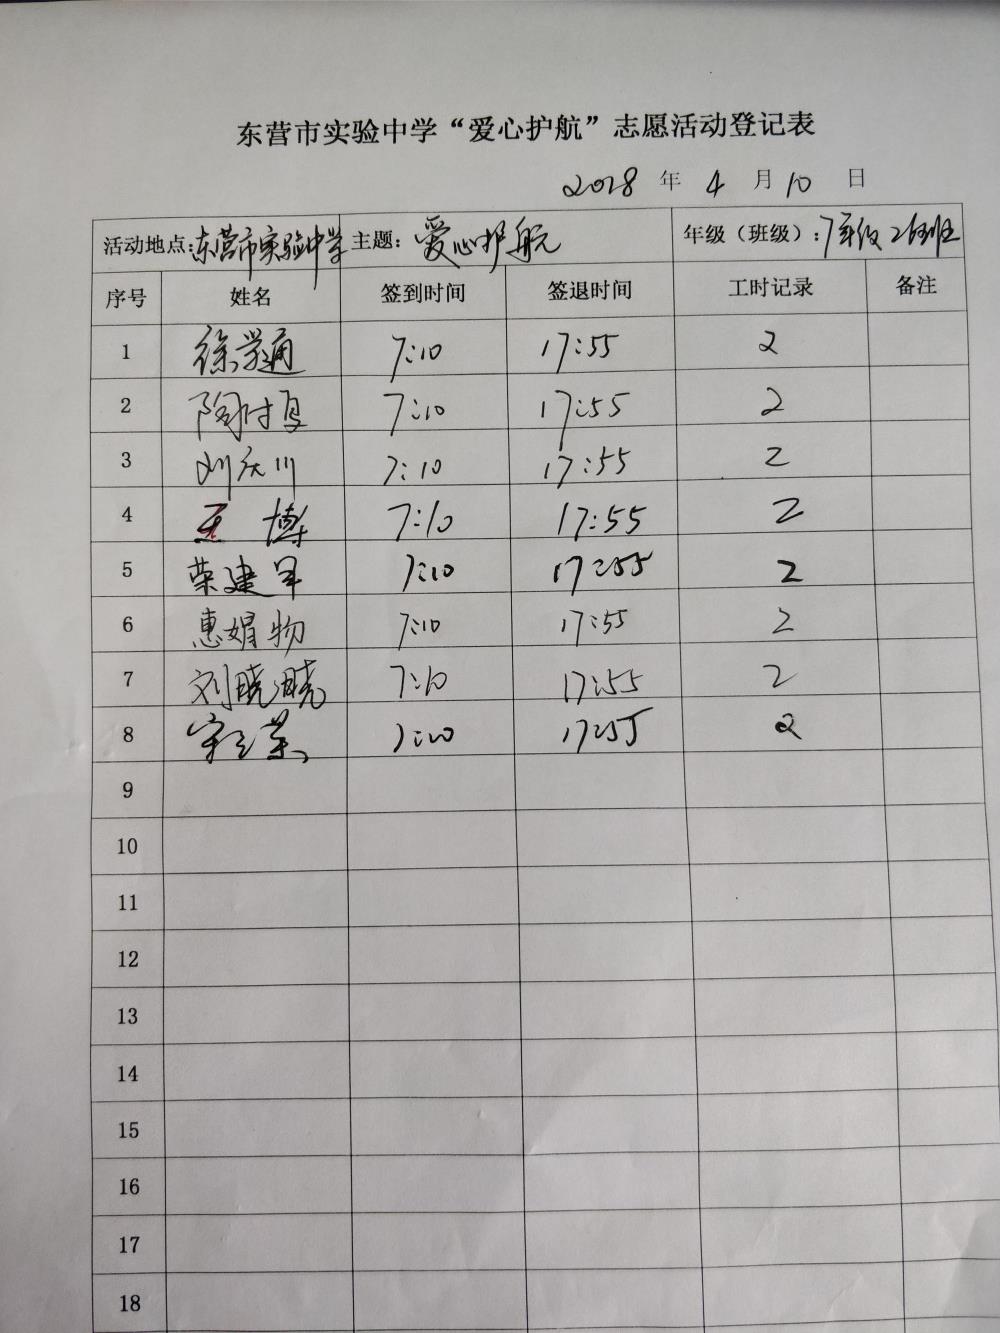 东营市实验中学“爱心护航”志愿活动登记表
2018 年 4 月 10 日
活动地点:东营市实验中学 主题:爱心护航 年级（班级）:7年级26班
序号 姓名 签到时间 签退时间 工时记录 备注
1 徐学通 7:10 17:55 2
2 陶时夏 7:10 17:55 2
3 刘庆川 7:10 17:55 2
4 王博 7:10 17:55 2
5 荣建军 7:10 17:55 2
6 惠娟 7:10 17:55 2
7 刘晓晓 7:10 17:55 2
8 宋 荣 7:10 17:55 2
9
10
11
12
13
14
15
16
17
18